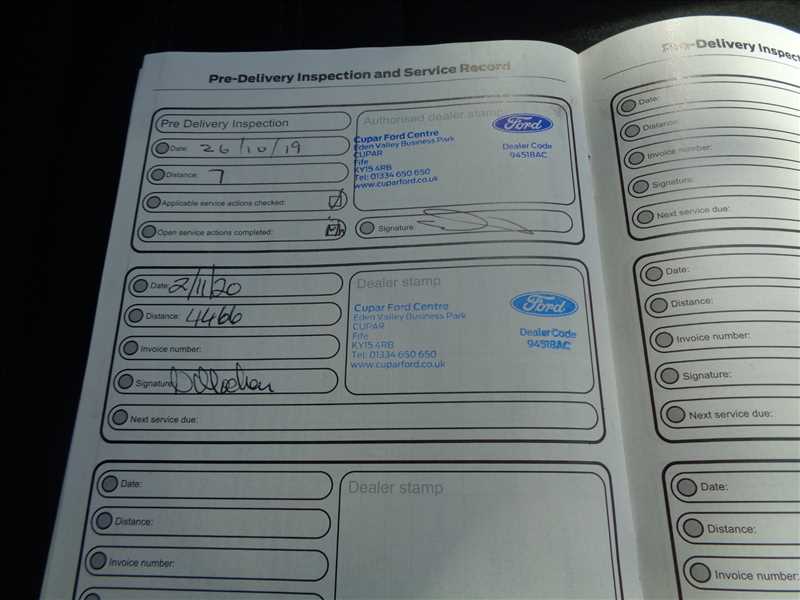 Pre-Delivery Inspection and Service Record
Pre Delivery Inspection
Date: 26/10/19
Distance: 7
Applicable service actions checked:
Open service actions completed:
Authorised dealer stamp
Cupar Ford Centre
Eden Valley Business Park
CUPAR
Fife
KY15 4RB
Tel: 01334 650 650
www.cuparford.co.uk
Ford
Dealer Code
94518AC
Signature:
Date: 2/11/20
Distance: 4466
Invoice number:
Signature:
Next service due:
Dealer stamp
Cupar Ford Centre
Eden Valley Business Park
CUPAR
Fife
KY15 4RB
Tel: 01334 650 650
www.cuparford.co.uk
Ford
Dealer Code
94518AC
Date:
Distance:
Invoice number:
Dealer stamp
Pre-Delivery Inspect
Date:
Distance:
Invoice number:
Signature:
Next service due:
Date:
Distance:
Invoice number:
Signature:
Next service due:
Date:
Distance:
Invoice number: